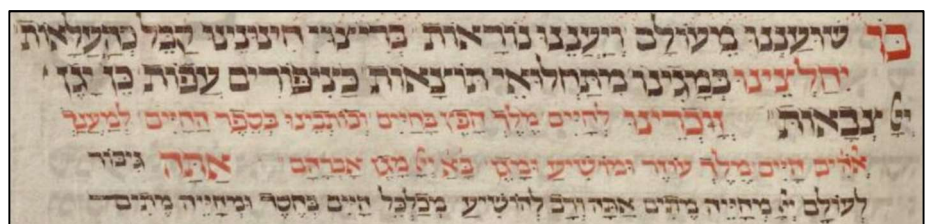 בך שׁוֹעַנְנוּ מֵעוֹלָם וְיַעֲנֵנוּ נוֹרָאוֹת כְּהַעֲלָאוֹת
יְחַלְּצֵינוּ כְּמָגִינֵּנוּ כְּצִיפּוֹרִים עָפוֹת כֵּן יָגֵן
צְבָאוֹת זָוכְרֵינוּ לְחַיִּים מֶלֶךְ חָפֵץ בַּחַיִּים וְכוֹתְבֵינוּ בְּסֵפֶר הַחַיִּים לְמַעֲנָךְ
אֱלֹהִים חַיִּים מֶלֶךְ עוֹזֵר וּמוֹשִׁיעַ וּמָגֵן מָגֵן אַבְרָהָם אַתָּה גִּיבּוֹר
לְעוֹלָם יְיָ מְחַיֵּיה מֵתִים אַתָּה וְרַב לְהוֹשִׁיעַ מְכַלְכֵּל חַיִּים בְּחֶסֶד וּמְחַיֵּיה מֵתִים